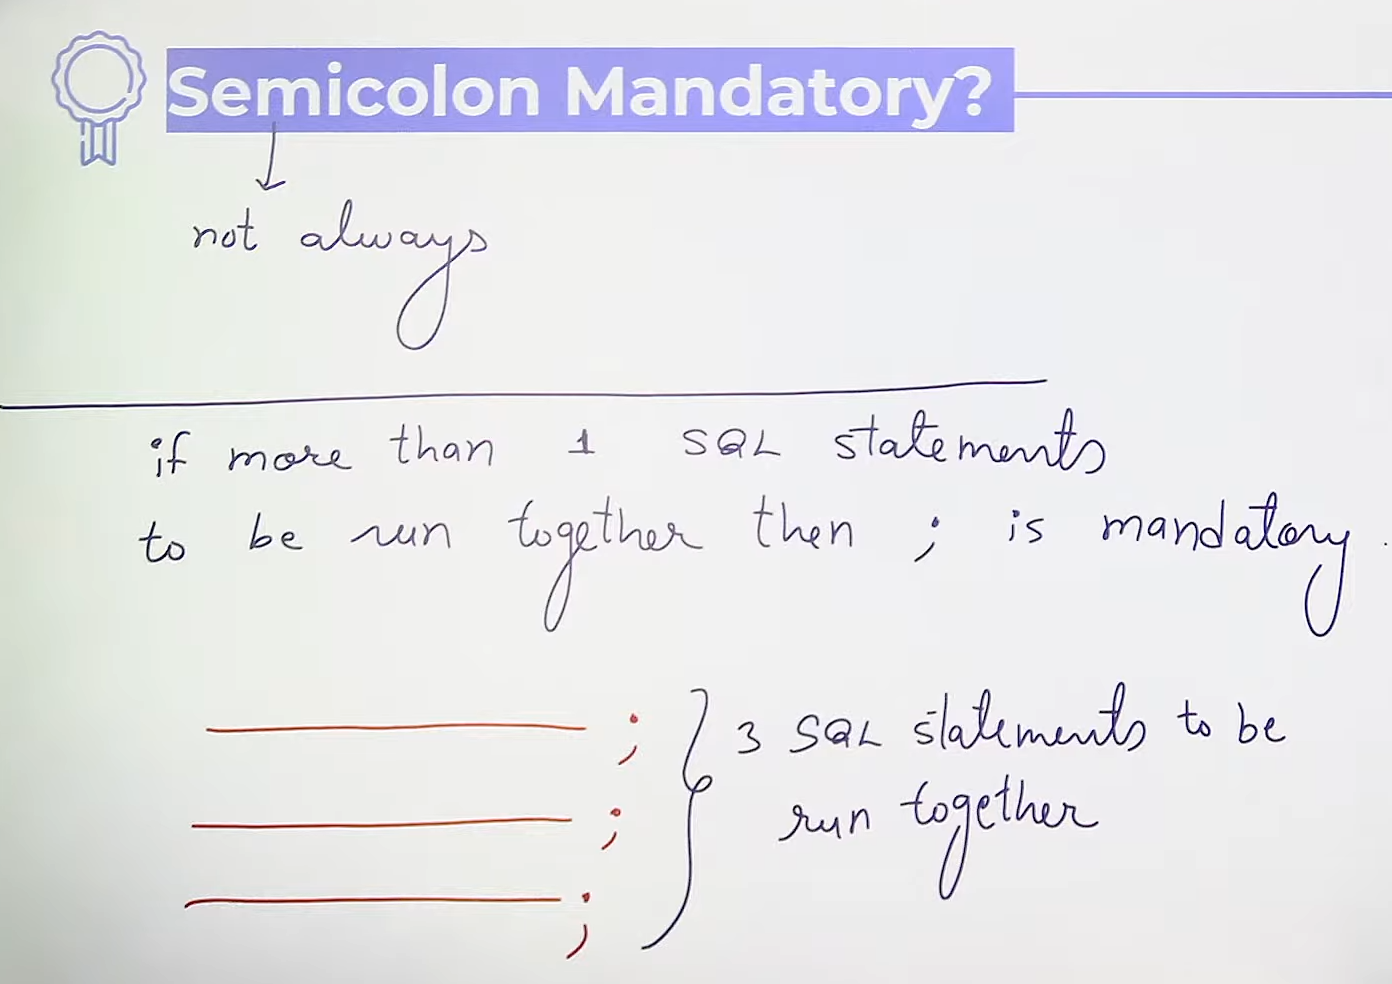 Semicolon Mandatory?
not always
if more than 1 SQL statements
to be run together then ; is mandatory.
; 3 SQL statements to be
; run together
;